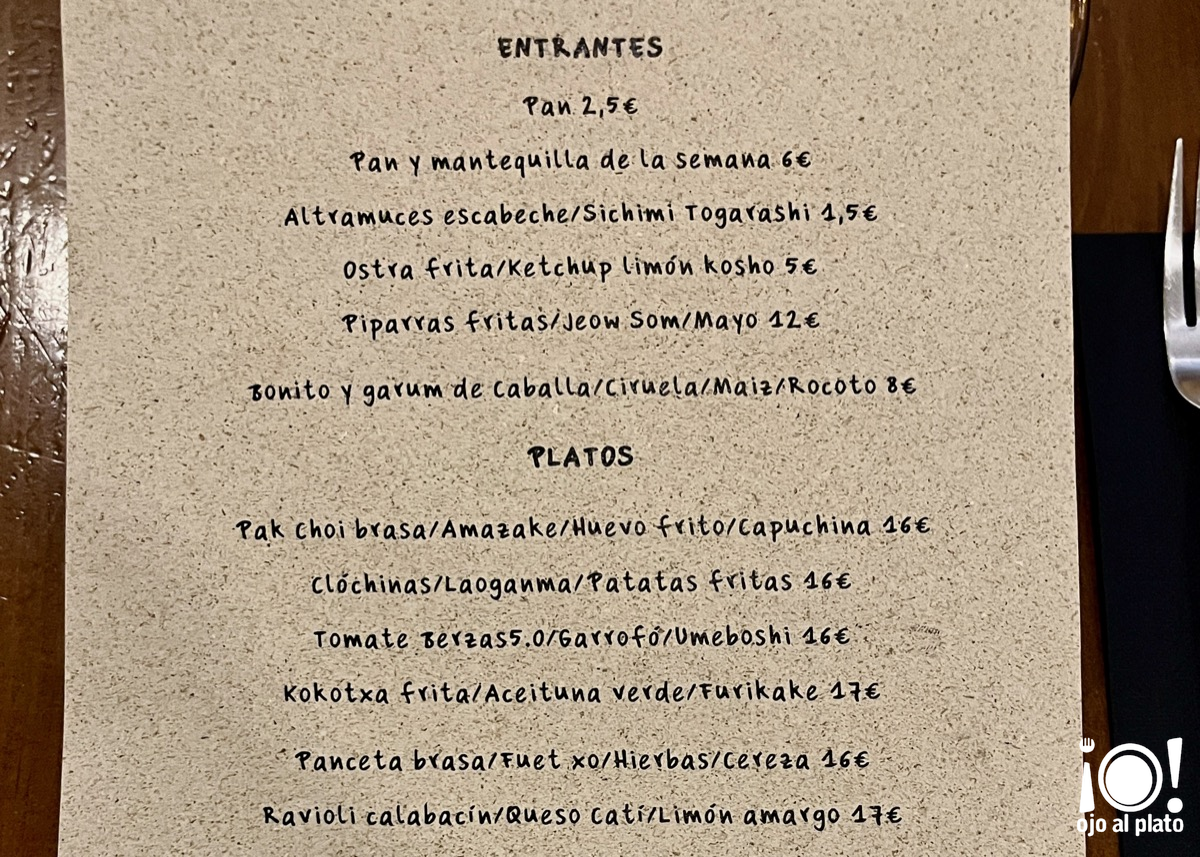 ENTRANTES
Pan 2,5€
Pan y mantequilla de la semana 6€
Altramuces escabeche/Sichimi Togarashi 1,5€
Ostra frita/Ketchup limón kosho 5€
Piparras fritas/Jeow Som/Mayo 12€
Bonito y garum de Caballa/Ciruela/Maiz/Rocoto 8€
PLATOS
Pak Choi brasa/Amazake/Huevo frito/Capuchina 16€
Clóchinas/Laoganma/Patatas fritas 16€
Tomate Berzas5.0/Garrofó/Umeboshi 16€
Kokotxa frita/Aceituna verde/Furikake 17€
Panceta brasa/Fuet xo/Hierbas/Cereza 16€
Ravioli calabacín/Queso Catí/Limón amargo 17€
¡O!
ojo al plato